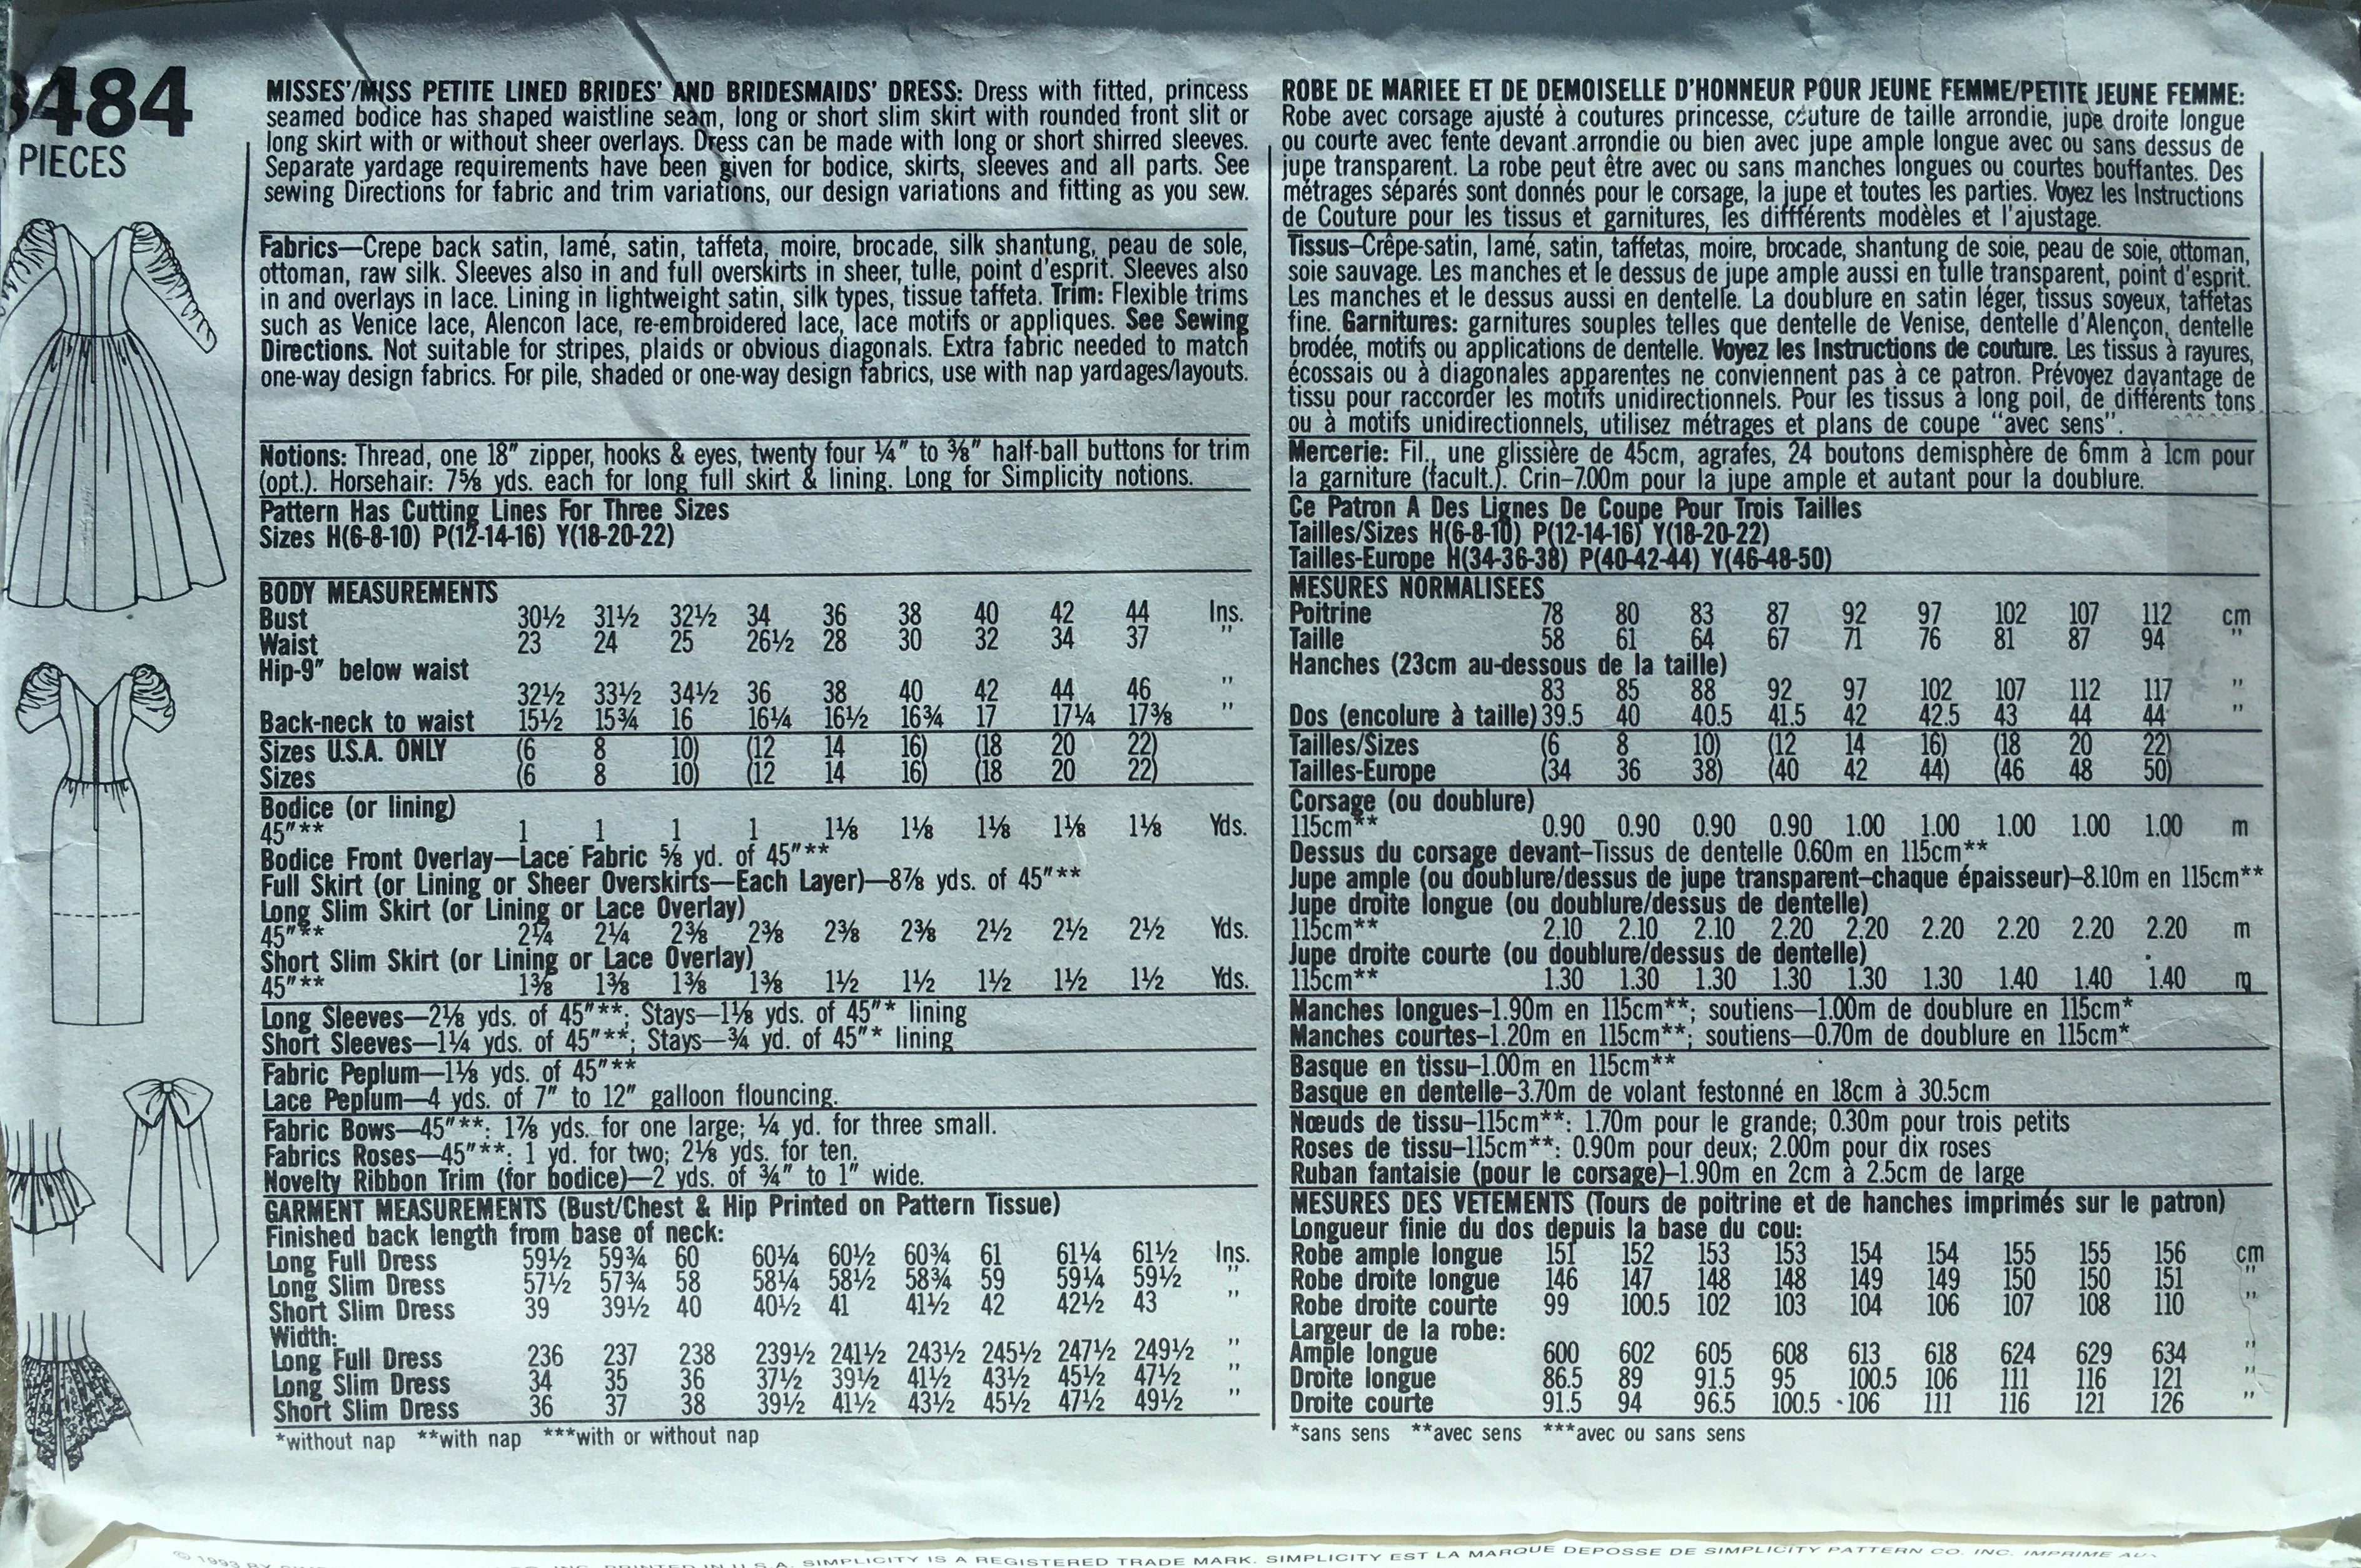 8484
PIECES
MISSES'/MISS PETITE LINED BRIDES' AND BRIDESMAIDS' DRESS: Dress with fitted, princess
seamed bodice has shaped waistline seam, long or short slim skirt with rounded front slit or
long skirt with or without sheer overlays. Dress can be made with long or short shirred sleeves.
Separate yardage requirements have been given for bodice, skirts, sleeves and all parts. See
sewing Directions for fabric and trim variations, our design variations and fitting as you sew.
Fabrics—Crepe back satin, lamé, satin, taffeta, moire, brocade, silk shantung, peau de sole,
ottoman, raw silk. Sleeves also in and full overskirts in sheer, tulle, point d'esprit. Sleeves also
in and overlays in lace. Lining in lightweight satin, silk types, tissue taffeta. Trim: Flexible trims
such as Venice lace, Alencon lace, re-embroidered lace, lace motifs or appliques. See Sewing
Directions. Not suitable for stripes, plaids or obvious diagonals. Extra fabric needed to match
one-way design fabrics. For pile, shaded or one-way design fabrics, use with nap yardages/layouts.
Notions: Thread, one 18" zipper, hooks & eyes, twenty four ¼" to ⅜" half-ball buttons for trim
(opt.). Horsehair: 7⅝ yds. each for long full skirt & lining. Long for Simplicity notions.
Pattern Has Cutting Lines For Three Sizes
Sizes H(6-8-10) P(12-14-16) Y(18-20-22)
BODY MEASUREMENTS
Bust 30½ 31½ 32½ 34 36 38 40 42 44 Ins.
Waist 23 24 25 26½ 28 30 32 34 37 "
Hip-9" below waist
32½ 33½ 34½ 36 38 40 42 44 46 "
Back-neck to waist 15½ 15¾ 16 16¼ 16½ 16¾ 17 17¼ 17⅜ "
Sizes U.S.A. ONLY (6 8 10) (12 14 16) (18 20 22)
Sizes (6 8 10) (12 14 16) (18 20 22)
Bodice (or lining)
45"** 1 1 1 1 1⅛ 1⅛ 1⅛ 1⅛ 1⅛ Yds.
Bodice Front Overlay—Lace Fabric ⅝ yd. of 45"**
Full Skirt (or Lining or Sheer Overskirts—Each Layer)—8⅞ yds. of 45"**
Long Slim Skirt (or Lining or Lace Overlay)
45"** 2¼ 2¼ 2⅜ 2⅜ 2⅜ 2⅜ 2½ 2½ 2½ Yds.
Short Slim Skirt (or Lining or Lace Overlay)
45"** 1⅜ 1⅜ 1⅜ 1⅜ 1½ 1½ 1½ 1½ 1½ Yds.
Long Sleeves—2⅛ yds. of 45"**; Stays—1⅛ yds. of 45"* lining
Short Sleeves—1¼ yds. of 45"**; Stays—¾ yd. of 45"* lining
Fabric Peplum—1⅛ yds. of 45"**
Lace Peplum—4 yds. of 7" to 12" galloon flouncing.
Fabric Bows—45"**: 1⅞ yds. for one large; ¼ yd. for three small.
Fabrics Roses—45"**: 1 yd. for two; 2⅛ yds. for ten.
Novelty Ribbon Trim (for bodice)—2 yds. of ¾" to 1" wide.
GARMENT MEASUREMENTS (Bust/Chest & Hip Printed on Pattern Tissue)
Finished back length from base of neck:
Long Full Dress 59½ 59¾ 60 60¼ 60½ 60¾ 61 61¼ 61½ Ins.
Long Slim Dress 57½ 57¾ 58 58¼ 58½ 58¾ 59 59¼ 59½ "
Short Slim Dress 39 39½ 40 40½ 41 41½ 42 42½ 43 "
Width:
Long Full Dress 236 237 238 239½ 241½ 243½ 245½ 247½ 249½ "
Long Slim Dress 34 35 36 37½ 39½ 41½ 43½ 45½ 47½ "
Short Slim Dress 36 37 38 39½ 41½ 43½ 45½ 47½ 49½ "
*without nap **with nap ***with or without nap
ROBE DE MARIEE ET DE DEMOISELLE D'HONNEUR POUR JEUNE FEMME/PETITE JEUNE FEMME:
Robe avec corsage ajusté à coutures princesse, couture de taille arrondie, jupe droite longue
ou courte avec fente devant arrondie ou bien avec jupe ample longue avec ou sans dessus de
jupe transparent. La robe peut être avec ou sans manches longues ou courtes bouffantes. Des
métrages séparés sont donnés pour le corsage, la jupe et toutes les parties. Voyez les Instructions
de Couture pour les tissus et garnitures, les diffférents modèles et l'ajustage.
Tissus—Crêpe-satin, lamé, satin, taffetas, moire, brocade, shantung de soie, peau de soie, ottoman,
soie sauvage. Les manches et le dessus de jupe ample aussi en tulle transparent, point d'esprit.
Les manches et le dessus aussi en dentelle. La doublure en satin léger, tissus soyeux, taffetas
fine. Garnitures: garnitures souples telles que dentelle de Venise, dentelle d'Alençon, dentelle
brodée, motifs ou applications de dentelle. Voyez les Instructions de couture. Les tissus à rayures,
écossais ou à diagonales apparentes ne conviennent pas à ce patron. Prévoyez davantage de
tissu pour raccorder les motifs unidirectionnels. Pour les tissus à long poil, de différents tons
ou à motifs unidirectionnels, utilisez métrages et plans de coupe "avec sens".
Mercerie: Fil., une glissière de 45cm, agrafes, 24 boutons demisphère de 6mm à 1cm pour
la garniture (facult.). Crin—7.00m pour la jupe ample et autant pour la doublure.
Ce Patron A Des Lignes De Coupe Pour Trois Tailles
Tailles/Sizes H(6-8-10) P(12-14-16) Y(18-20-22)
Tailles-Europe H(34-36-38) P(40-42-44) Y(46-48-50)
MESURES NORMALISEES
Poitrine 78 80 83 87 92 97 102 107 112 cm
Taille 58 61 64 67 71 76 81 87 94 "
Hanches (23cm au-dessous de la taille)
83 85 88 92 97 102 107 112 117 "
Dos (encolure à taille) 39.5 40 40.5 41.5 42 42.5 43 44 44 "
Tailles/Sizes (6 8 10) (12 14 16) (18 20 22)
Tailles-Europe (34 36 38) (40 42 44) (46 48 50)
Corsage (ou doublure)
115cm** 0.90 0.90 0.90 0.90 1.00 1.00 1.00 1.00 1.00 m
Dessus du corsage devant—Tissus de dentelle 0.60m en 115cm**
Jupe ample (ou doublure/dessus de jupe transparent—chaque épaisseur)—8.10m en 115cm**
Jupe droite longue (ou doublure/dessus de dentelle)
115cm** 2.10 2.10 2.10 2.20 2.20 2.20 2.20 2.20 2.20 m
Jupe droite courte (ou doublure/dessus de dentelle)
115cm** 1.30 1.30 1.30 1.30 1.30 1.30 1.40 1.40 1.40 m
Manches longues—1.90m en 115cm**; soutiens—1.00m de doublure en 115cm*
Manches courtes—1.20m en 115cm**; soutiens—0.70m de doublure en 115cm*
Basque en tissu—1.00m en 115cm**
Basque en dentelle—3.70m de volant festonné en 18cm à 30.5cm
Nœuds de tissu—115cm**: 1.70m pour le grande; 0.30m pour trois petits
Roses de tissu—115cm**: 0.90m pour deux; 2.00m pour dix roses
Ruban fantaisie (pour le corsage)—1.90m en 2cm à 2.5cm de large
MESURES DES VETEMENTS (Tours de poitrine et de hanches imprimés sur le patron)
Longueur finie du dos depuis la base du cou:
Robe ample longue 151 152 153 153 154 154 155 155 156 cm
Robe droite longue 146 147 148 148 149 149 150 150 151 "
Robe droite courte 99 100.5 102 103 104 106 107 108 110 "
Largeur de la robe:
Ample longue 600 602 605 608 613 618 624 629 634 "
Droite longue 86.5 89 91.5 95 100.5 106 111 116 121 "
Droite courte 91.5 94 96.5 100.5 106 111 116 121 126 "
*sans sens **avec sens ***avec ou sans sens
© 1993 BY INC. PRINTED IN U.S.A. SIMPLICITY IS A REGISTERED TRADE MARK. SIMPLICITY EST LA MARQUE DEPOSSE DE SIMPLICITY PATTERN CO. INC. IMPRIME AUX